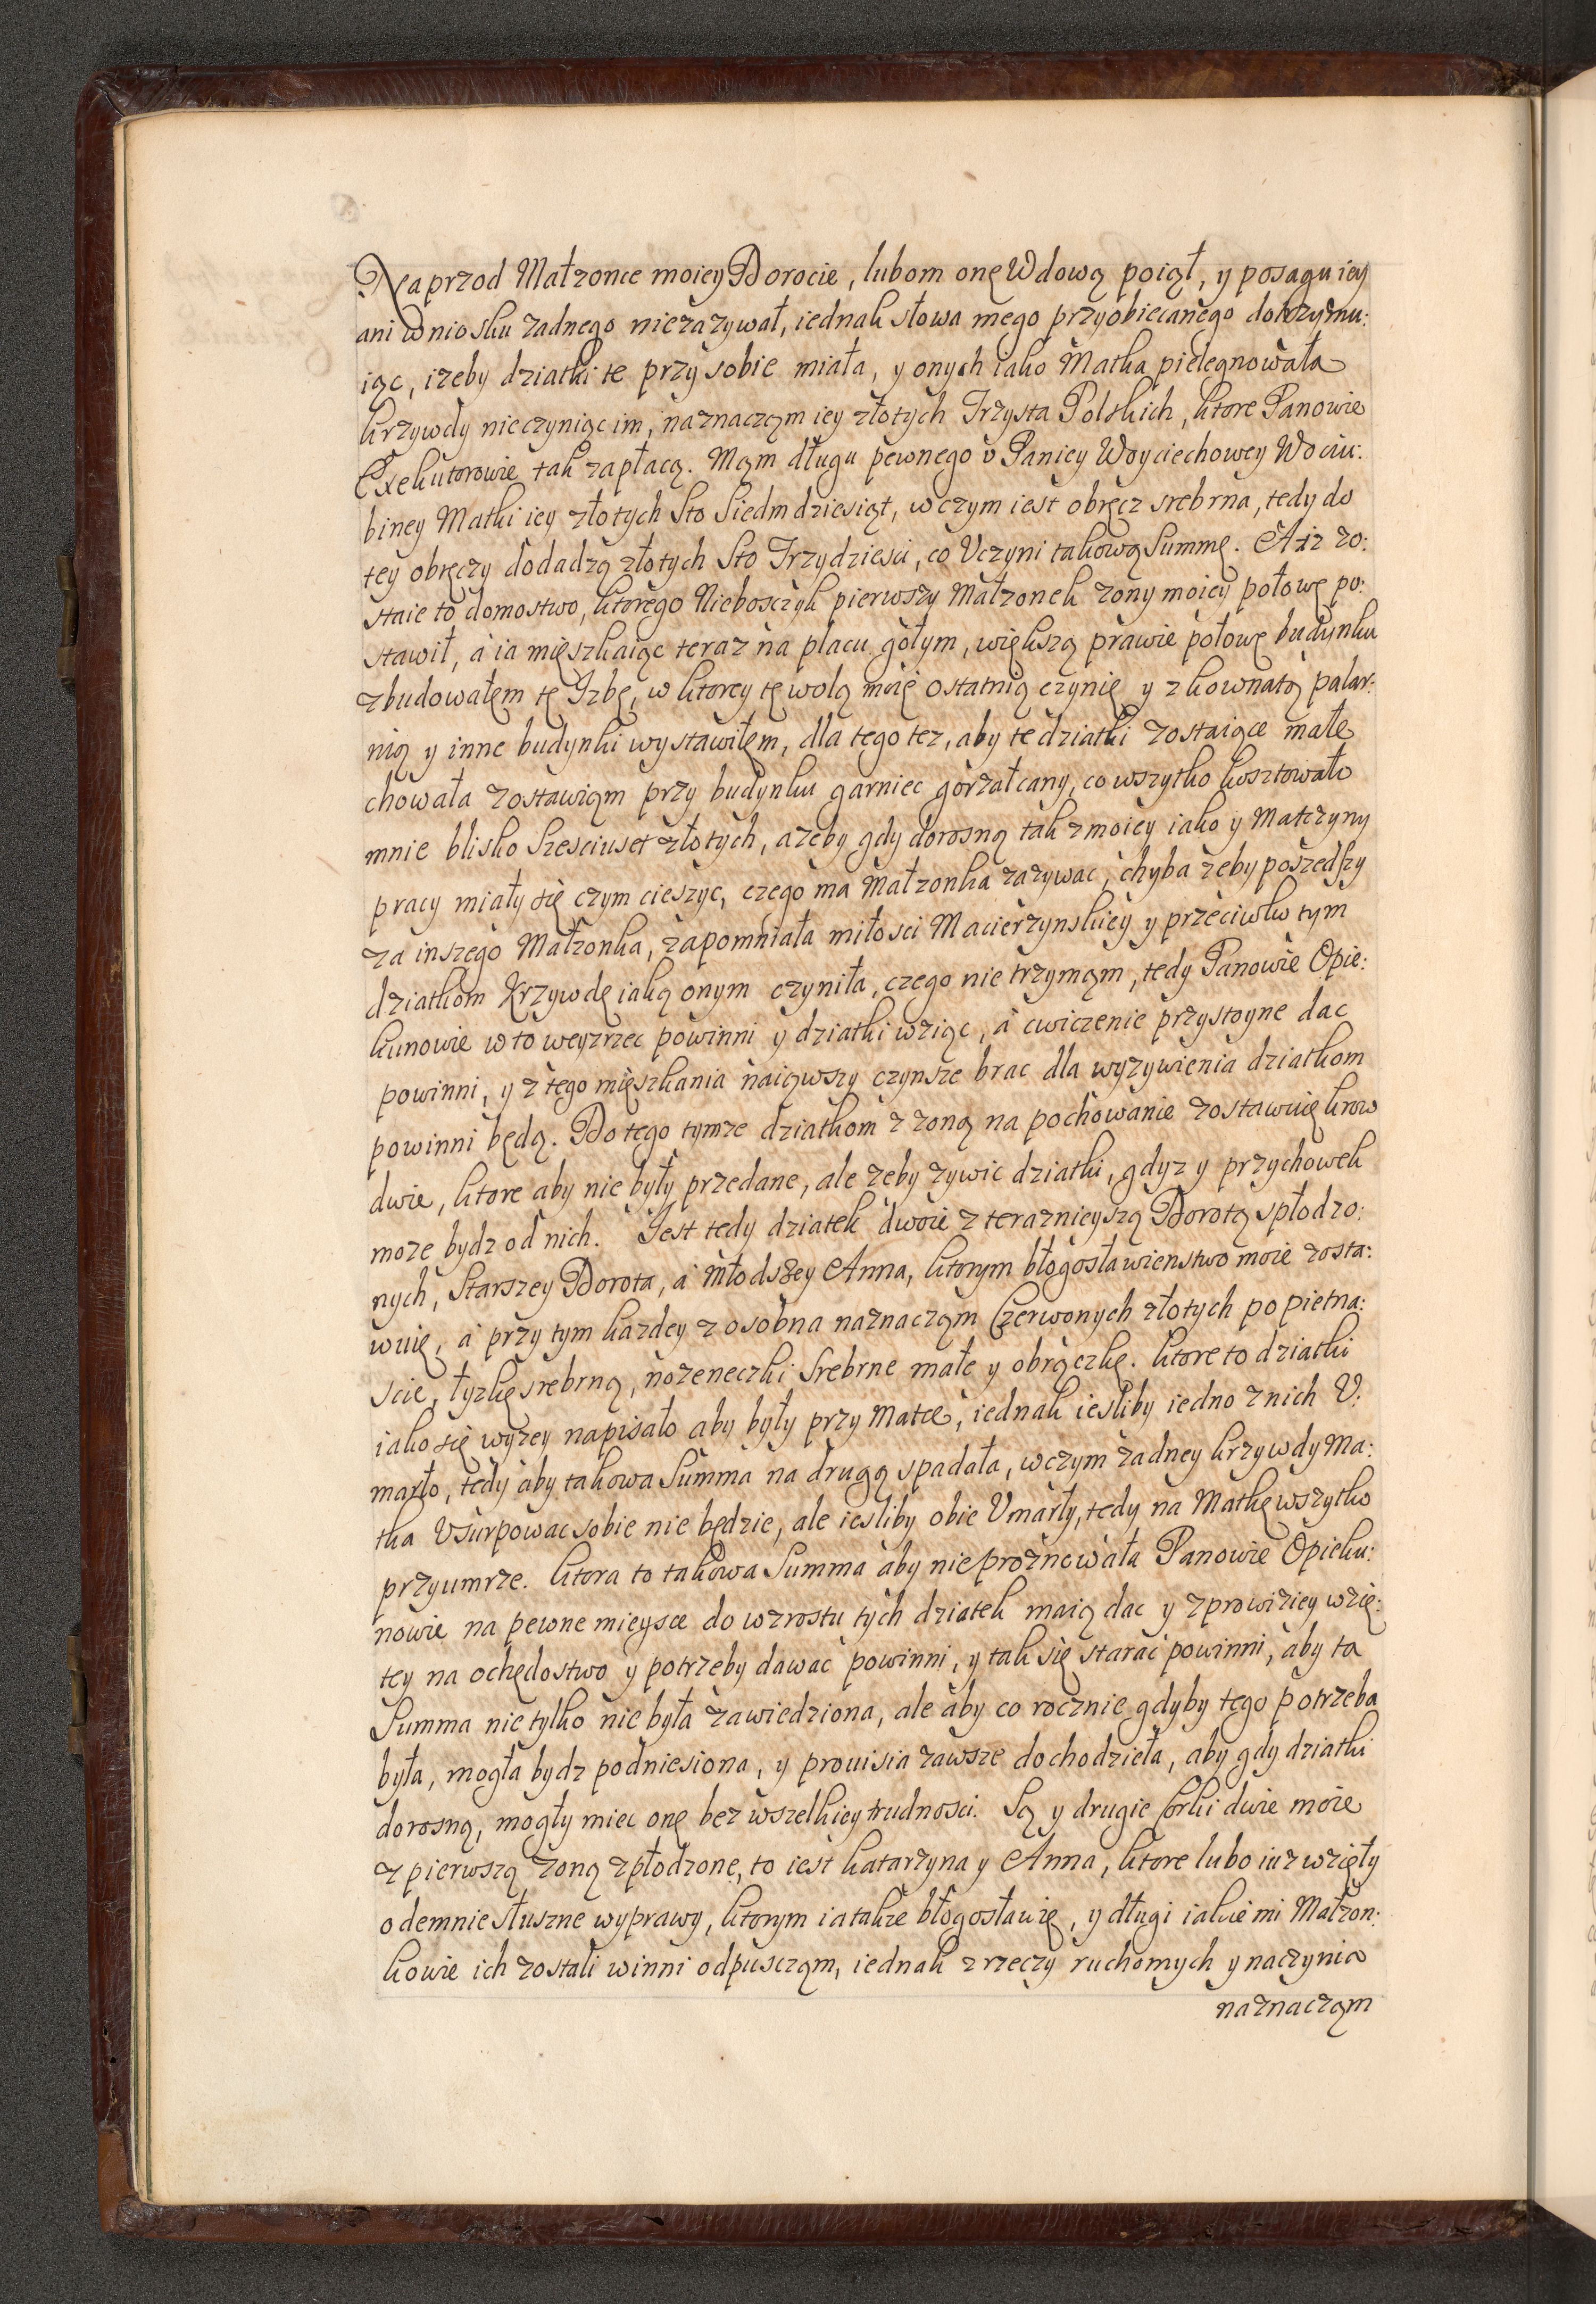 Naprzod Małzonce moiey Dorocie, lubom onę Wdową poiął, y posagu iey
ani wniosku zadnego niezazywał, iednak słowa mego przyobiecanego dotrzymu:
iąc, izeby dziatki te przy sobie miała, y onych iako Matka pielegnowała
krzywdy nieczyniąc im, naznaczam iey złotych Trzysta Polskich, ktore Panowie
Exekutorowie tak zapłacą. Mąm długu pewnego v Paniey Woyciechowey Wociu:
biney Matki iey złotych Sto Siedmdziesiąt, w czym iest obręcz srebrna, tedy do
tey obręczy dodadzą złotych Sto Trzydziesci, co Vczyni takową Summę. A iz zo:
staie to domostwo, ktorego Nieboszczyk pierwszy Małzonek zony moiey połowę po:
stawił, a ia mięszkaiąc teraz na placu gołym, większą prawie połowę budynku
zbudowałem tę Izbę, w ktorey tę wolą moię ostatnią czynię y z kownatą palar:
nią y inne budynki wystawiłem, dla tego tez, aby te dziatki zostaiące małe
chowała zostawiąm przy budynku garniec gorzałcany, co wszytko kosztowało
mnie blisko Szesciuset złotych, azeby gdy dorosną tak z moiey iako y Matczyny
pracy miały się czym cieszyc, czego ma Małzonka zazywac, chyba zeby poszedszy
za inszego Małzonka, zapomniała miłosci Macierzynskiey y przeciwko tym
dziatkom Krzywdę iaką onym czyniła, czego nie trzymąm, tedy Panowie Opie:
kunowie w to weyzrzec powinni y dziatki wziąc, a cwiczenie przystoyne dac
powinni, y z tego mięszkania naiąwszy czynsze brac dla wyzywienia dziatkom
powinni będą. Do tego tymze dziatkom z zoną na pochowanie zostawuię krow
dwie, ktore aby nie były przedane, ale zeby zywic dziatki, gdyz y przychowek
moze bydz od nich. Jest tedy dziatek dwoie z teraznieyszą Dorotą spłodzo:
nych, Starszey Dorota, a Młodszey Anna, ktorym błogosławienstwo moie zosta:
wuię, a przy tym kazdey z osobna naznacząm Czerwonych złotych po pietna:
scie, łyzkę srebrną, nozeneczki Srebrne małe y obrączkę. ktore to dziatki
iako się wyzey napisało aby były przy Matce, iednak iesliby iedno z nich V:
marło, tedy aby takowa Summa na drugą spadała, w czym zadney krzywdy Ma:
tka Vsurpowac sobie nie będzie, ale iesliby obie Vmarły, tedy na Matkę wszytko
przyumrze. ktora to takowa Summa aby nie proznowała Panowie Opieku:
nowie na pewne mieysce do wzrostu tych dziatek maią dac y z prowiziey wzię:
tey na ochędostwo y potrzeby dawac powinni, y tak się starac powinni, aby ta
Summa nie tylko nie była zawiedziona, ale aby co rocznie gdyby tego potrzeba
była, mogła bydz podniesiona, y prouisia zawsze dochodzieła, aby gdy dziatki
dorosną, mogły miec onę bez wszelkiey trudnosci. Są y drugie Corki dwie moie
z pierwszą zoną zpłodzone, to iest katarzyna y Anna, ktore lubo iuz wzięły
odemnie słuszne wyprawy, ktorym ia takze błogosławię, y długi iakie mi Małzon:
kowie ich zostali winni odpuscząm, iednak z rzeczy ruchomych y naczynia
naznacząm